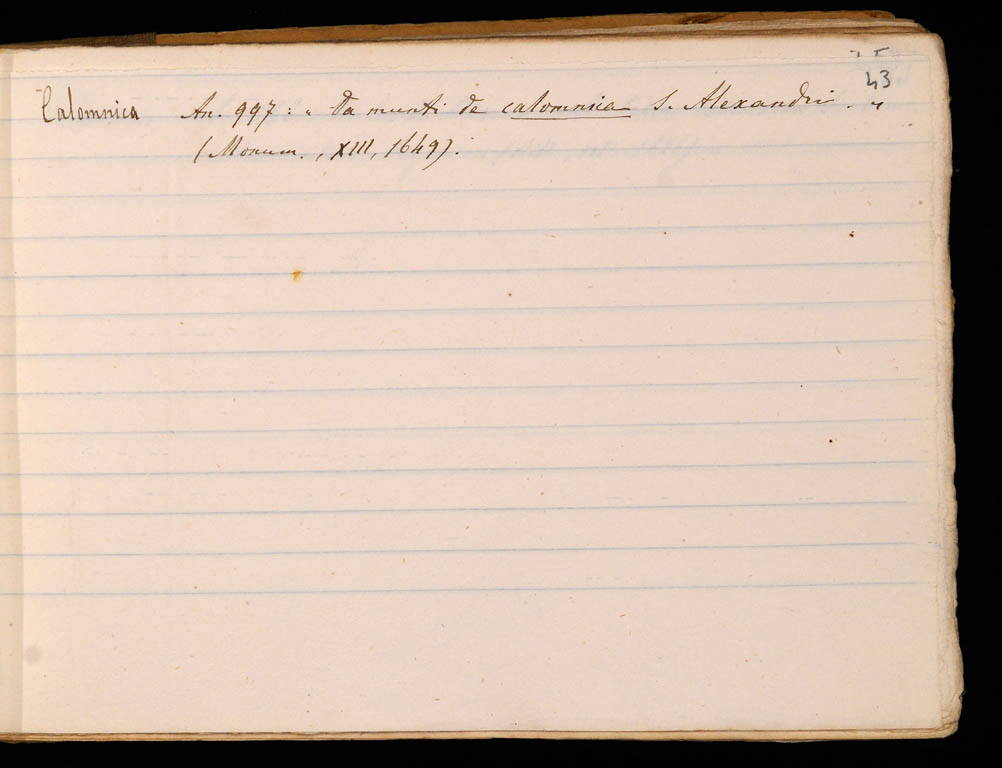 43
Calomnica An. 997 : " Da munti de calomnica S. Alexandri . "
(Monum., XIII, 1649).